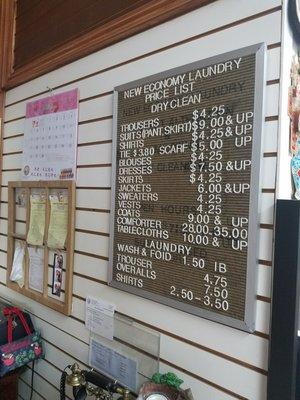 NEW ECONOMY LAUNDRY
PRICE LIST
DRY CLEAN
TROUSERS $4.25
SUITS(PANT,SKIRT) $9.00 & UP
SHIRTS $4.25 & UP
TIE $3.80 SCARF $5.00 & UP
BLOUSES $4.25
DRESSES $7.50 & UP
SKIRTS $4.25
JACKETS 6.00 & UP
SWEATERS 4.25
VESTS 4.25
COATS 9.00 & UP
COMFORTER 28.00-35.00
TABLECLOTHS 10.00 & UP
LAUNDRY
WASH & FOLD 1.50 lB
TROUSER 4.75
OVERALLS 7.50
SHIRTS 2.50-3.50